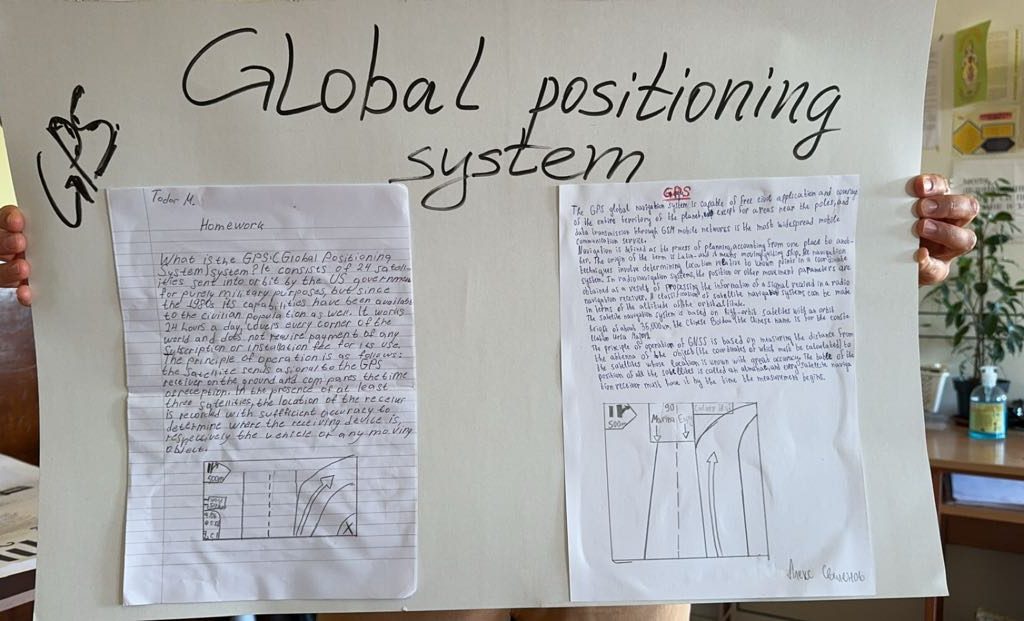 Global positioning
system
GPS
Todor M.
Homework
What is the GPS(Global Positioning
System)system? It consists of 24 satell-
ites sent into orbit by the US government
for purely military purposes, but since
the 1980s its capabilities have been available
to the civilian population as well. It works
24 hours a day, covers every corner of the
world and does not require payment of any
subscription or installation fee for its use.
The principle of operation is as follows:
the satellite sends a signal to the GPS
receiver on the ground and compares the time
of reception. In the presence of at least
three satellites, the location of the receiver
is recorded with sufficient accuracy to
determine where the receiving device is,
respectively the vehicle or any moving
object.
500m
GPS
The GPS global navigation system is capable of free civil application and coverage
of the entire territory of the planet, except for areas near the poles, and
data transmission through GSM mobile networks is the most widespread mobile
communication service.
Navigation is defined as the process of planning, accounting from one place to anot-
her. The origin of the term is Latin and means moving ship, the navigation
techniques involve determining location relative to known points in a coordinate
system. In radionavigation systems, the position or other movement parameters are
obtained as a result of processing the information of a signal received in a radio
navigation receiver. A classification of satellite navigation systems can be made
in terms of the altitude of the orbital
The satellite navigation system is based on high-orbit satellites with an orbit
height of about 36,000km, the Chinese Baidou the Chinese name is for the conste-
llation Ursa Major.
The principle of operation of GNSS is based on measuring the distance from
the antenna of the object (the coordinates of which must be calculated) to
the satellites whose location is known with great accuracy. The table of the
position of all the satellites is called an almanac, and every satellite naviga-
tion receiver must have it by the time the measurement begins.
500m
901
Marina